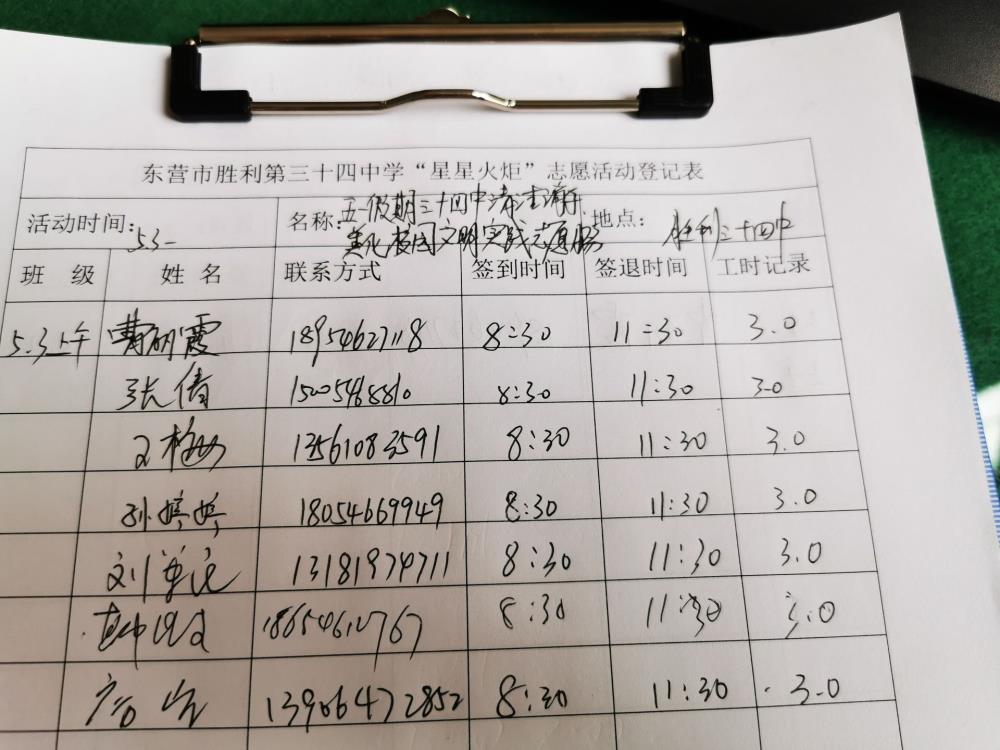 东营市胜利第三十四中学“星星火炬”志愿活动登记表
活动时间: 5.3 名称: 五一假期三十四中 地点: 胜利三十四中
美化校园文明实践志愿服
班 级 姓 名 联系方式 签到时间 签退时间 工时记录
5.3上午 曹丽霞 18954627118 8:30 11:30 3.0
张倩 8:30 11:30 3.0
13561083591 8:30 11:30 3.0
孙婷婷 18054669949 8:30 11:30 3.0
刘 13181974711 8:30 11:30 3.0
8:30 11:30 3.0
13906472852 8:30 11:30 3.0